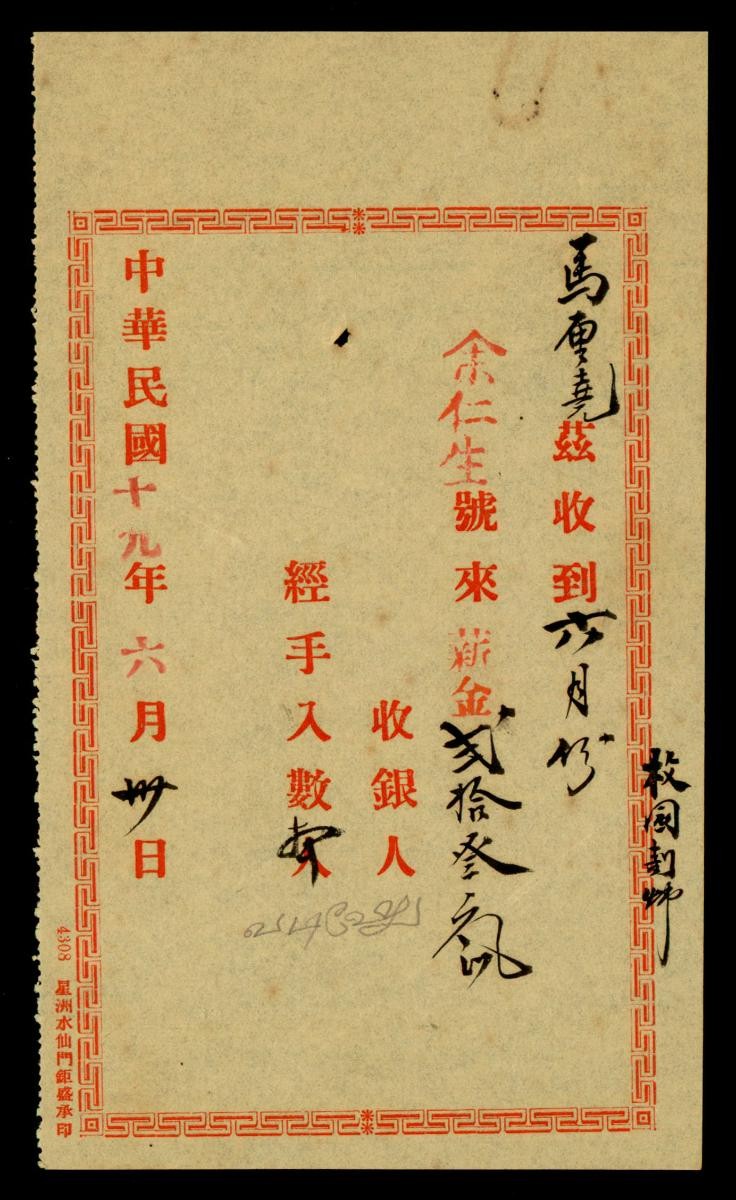 馬厘堯茲收到六月份
余仁生號來薪金弍拾叁
收銀人
經手入數人
中華民國十九年六月卅日
4308 星洲水仙門鉅盛承印